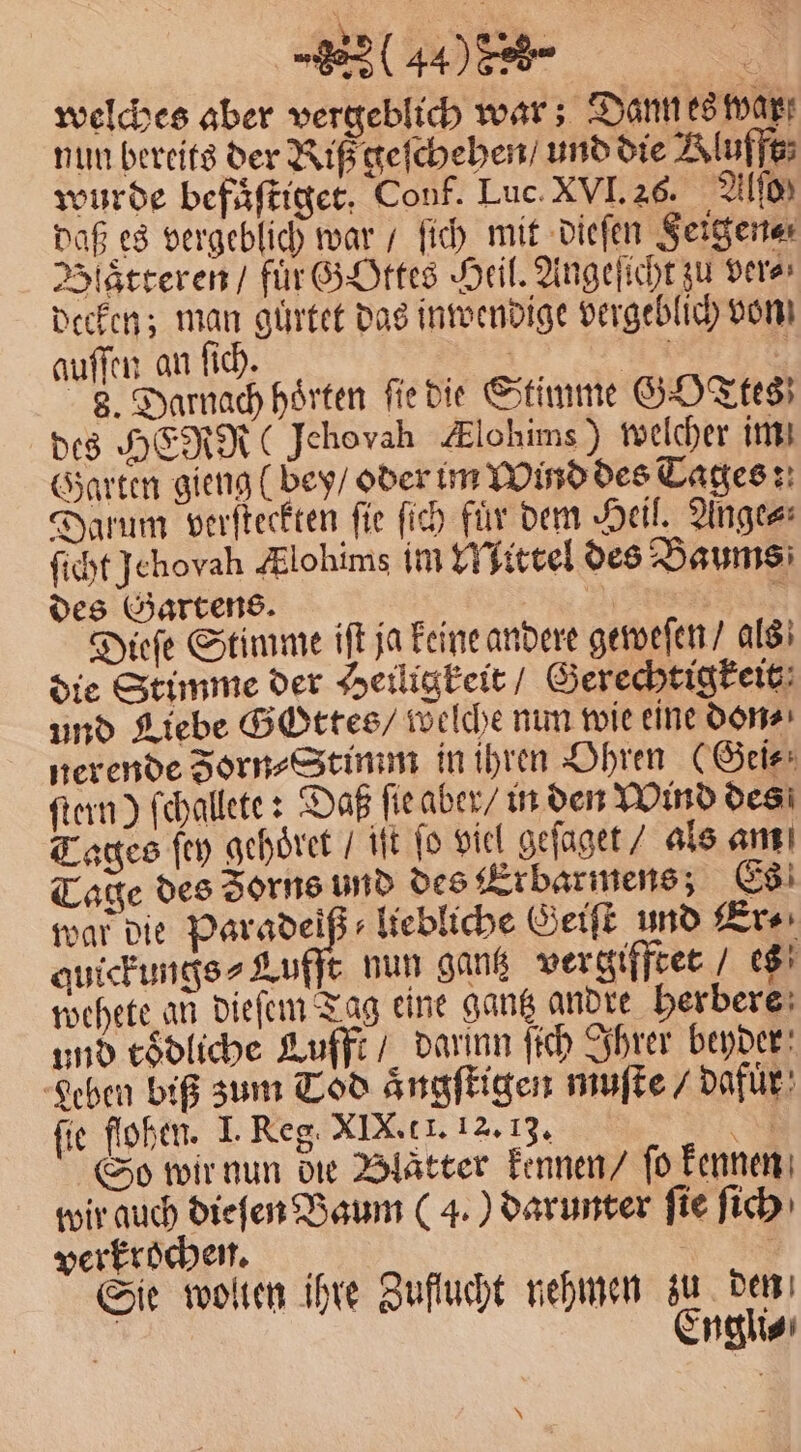 ( 44 )
welches aber vergeblich war; Dann es war
nun bereits der Riß geſchehen/ und die Klufft
wurde befaͤſtiget. Conf. Luc. XVI. 26. Alſo
daß es vergeblich war / ſich mit dieſen Feigen-
Blaͤtteren / fuͤr GOttes Heil. Angeſicht zu ver-
decken; man guͤrtet das inwendige vergeblich von
auſſen an ſich.
8. Darnach hoͤrten ſie die Stimme GOTtes
des HERRN ( Jehovah Ælohims ) welcher im
Garten gieng ( bey/ oder im Wind des Tages:
Darum verſteckten ſie ſich fuͤr dem Heil. Ange-
ſicht Jehovah Ælohims im Mittel des Baums
des Gartens.
Dieſe Stimme iſt ja keine andere geweſen / als
die Stimme der Heiligkeit / Gerechtigkeit
und Liebe GOttes/ welche nun wie eine don-
nerende Zorn-Stimm in ihren Ohren (Gei-
ſtern) ſchallete: Daß ſie aber/ in den Wind des
Tages ſey gehoͤret / iſt ſo viel geſaget / als am
Tage des Zorns und des Erbarmens; Es
war die Paradeiß-liebliche Geiſt und Er-
quickungs-Lufft nun gantz vergifftet / es
wehete an dieſem Tag eine gantz andre herbere
und toͤdliche Lufft / darinn ſich Ihrer beyder
Leben biß zum Tod aͤngſtigen muſte / dafuͤr
ſie flohen. I. Reg. XIX. 11. 12. 13.
So wir nun die Blaͤtter kennen/ ſo kennen
wir auch dieſen Baum ( 4. ) darunter ſie ſich
verkrochen.
Sie wolten ihre Zuflucht nehmen zu den
Engli-